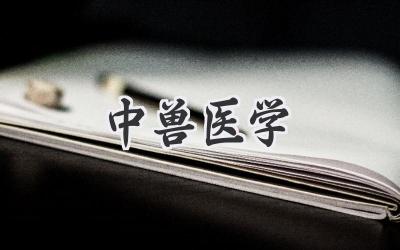 中兽医学